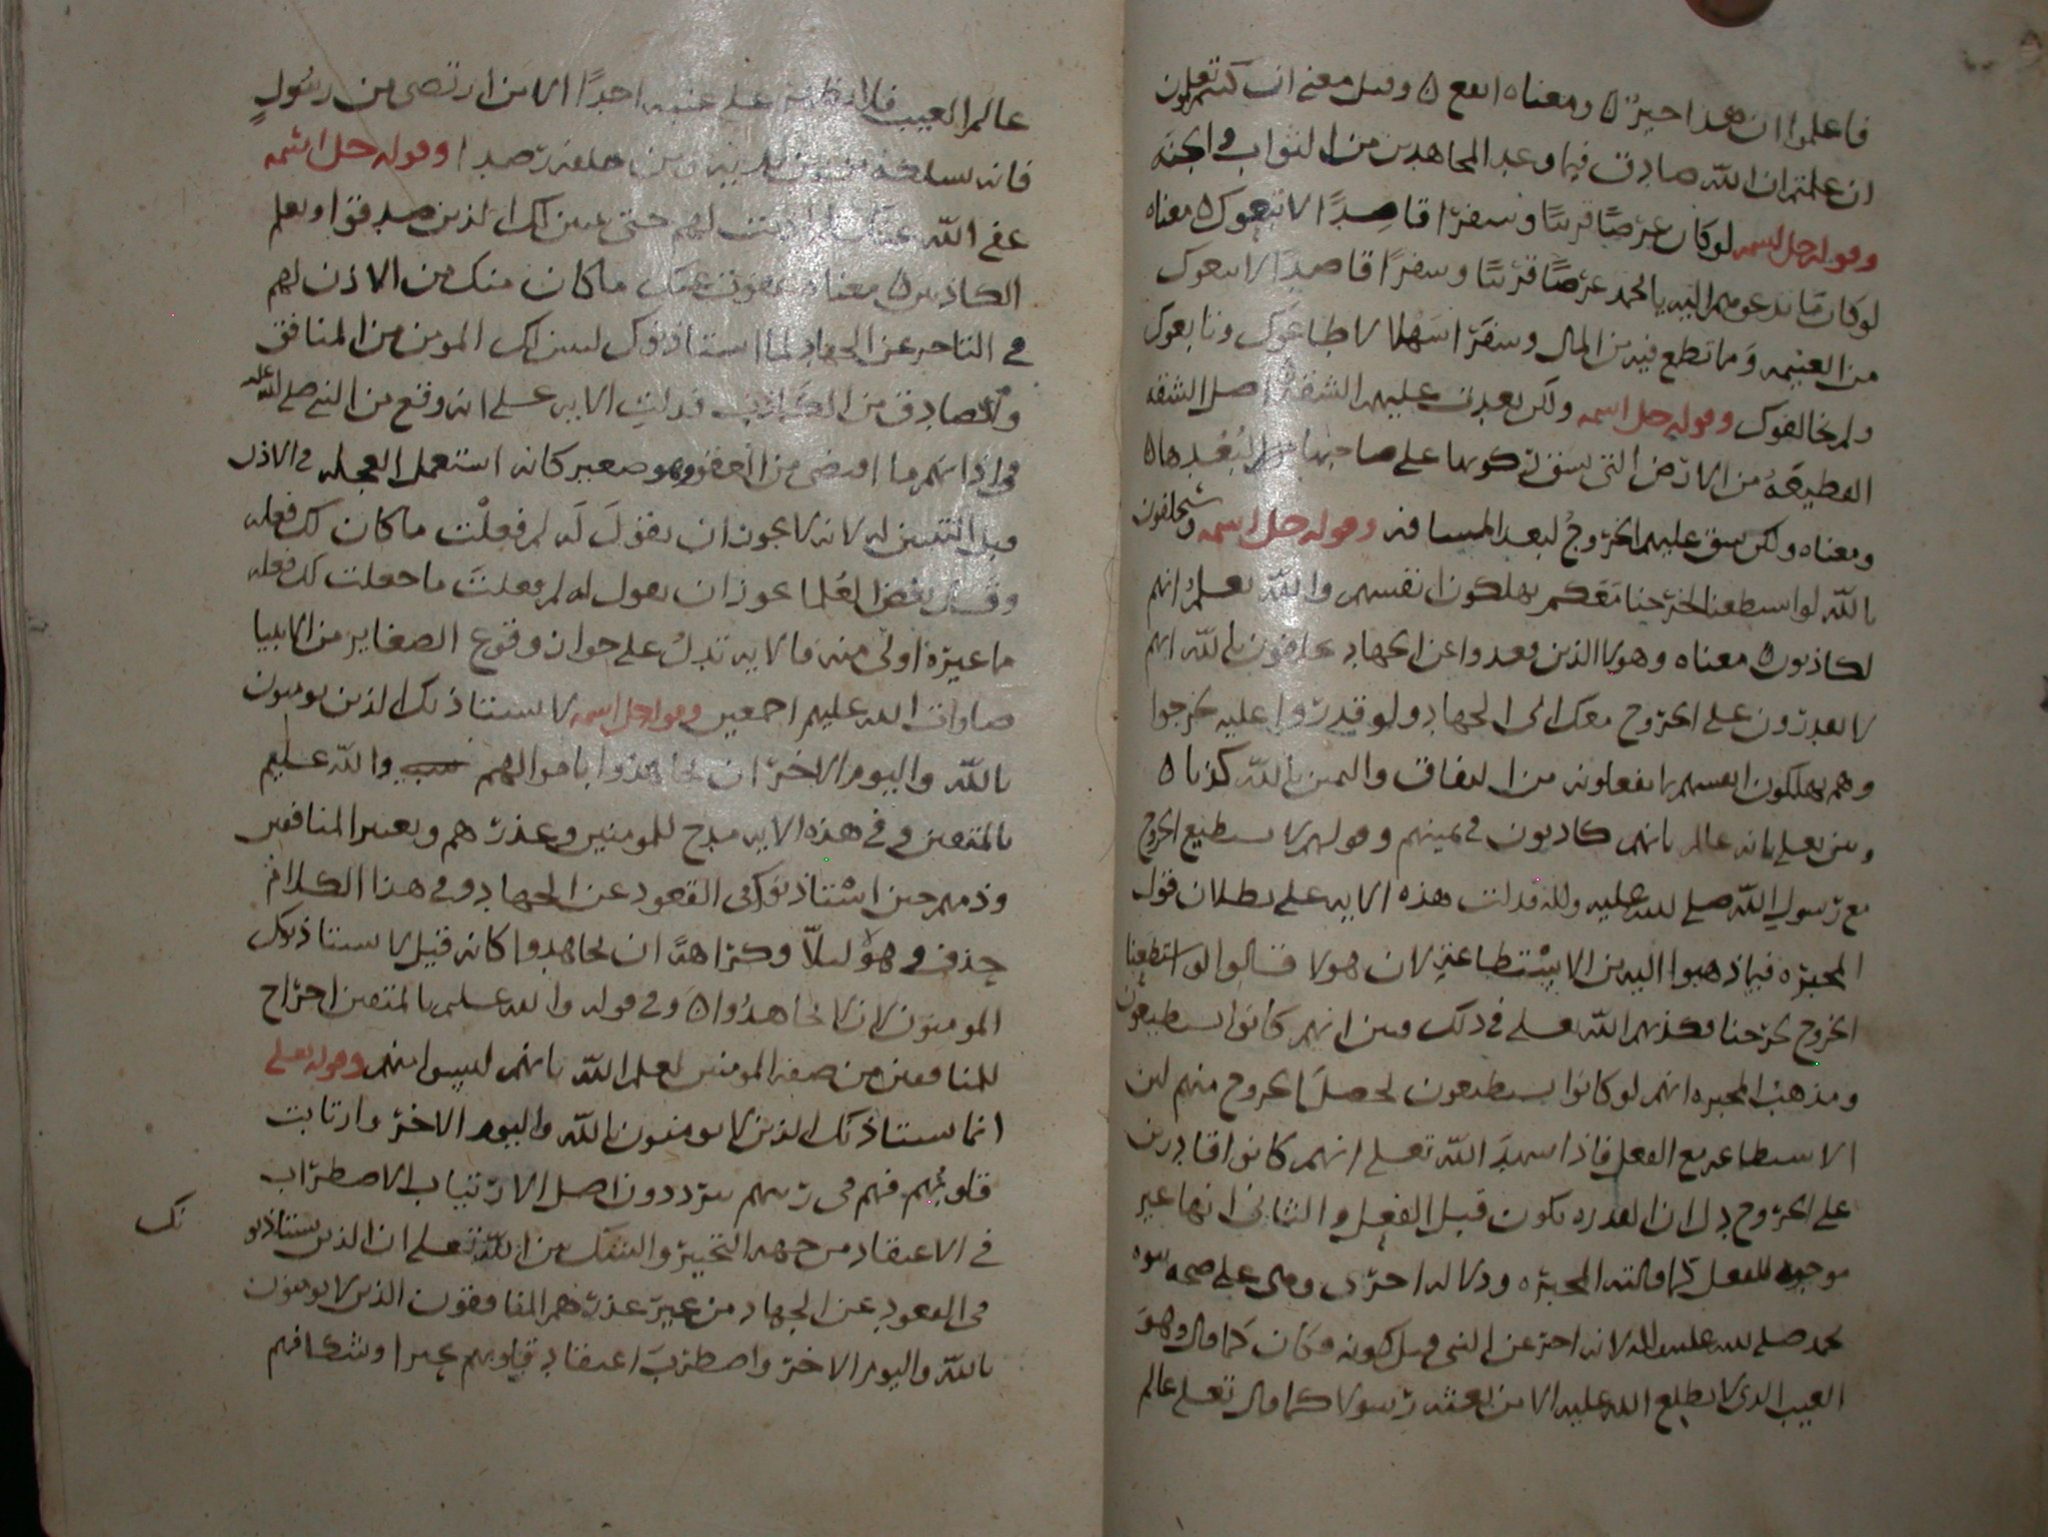 فاعلموا ان هذا خير ومعناه انفع وقيل معنى ان كنتم تعلمون
ان علمتم ان الله صادق فيما وعد المجاهدين من الثواب والجنة
وقوله جل اسمه لو كان عرضًا قريبًا وسفرًا قاصدًا لاتبعوك معناه
لو كان ما تدعوهم اليه يا محمد عرضًا قريبًا وسفرًا قاصدًا لاتبعوك
من الغنيمه وما تطمع فيه من المال وسفرًا سهلا لاطاعوك وتابعوك
ولم يخالفوك وقوله جل اسمه ولكن بعدت عليهم الشقة اصل الشقه
القطيعة من الارض التي يشق ركوبها على صاحبها لبُعدها
ومعناه ولكن شق عليهم الخروج لبعد المسافه وقوله جل اسمه وسيحلفون
بالله لو استطعنا لخرجنا معكم يهلكون انفسهم والله يعلم انهم
لكاذبون معناه وهولا الذين قعدوا عن الجهاد يحلفون بالله انهم
لا يقدرون على الخروج معك الى الجهاد ولو قدروا عليه لخرجوا
وهم يهلكون انفسهم بما يفعلونه من النفاق واليمين بالله كذبا
وبين تعلى بانه عالم بانهم كاذبون في يمينهم وقولهم لا نستطيع الخروج
مع رسول الله صلى الله عليه واله فدلت هذه الايه على بطلان قول
المجبره فيما ذهبوا اليه من الاستطاعة لان هولا قالوا لو استطعنا
الخروج لخرجنا فكذبهم الله تعلى في ذلك وبين انهم كانوا يستطيعون
ومذهب المجبره انهم لو كانوا يستطيعون لحصل الخروج منهم لان
الاستطاعه مع الفعل فاذا شهد الله تعلى انهم كانوا قادرين
على الخروج دل ان القدره تكون قبل الفعل والثاني انها غير
موجبه للفعل كما قالته المجبره ودلاله اخرى وهى على صحه نبوه
محمد صلى الله عليه واله لانه اخبر عن الشي قبل كونه فكان كما قال وهو
الغيب الذى لا يطلع الله عليه الا من بعثه رسولا كما قال تعلى عالم
عالم الغيب فلا يظهر على غيبه احدًا الا من ارتضى من رسولٍ
فانه يسلك من بين يديه ومن خلفه رصدا وقوله جل اسمه
عفى الله عنك لم اذنت لهم حتى يتبين لك الذين صدقوا وتعلم
الكاذبين معناه يعفوا عنك ما كان منك من الاذن لهم
في التاخر عن الجهاد لما استاذنوك ليبين لك المومن من المنافق
والصادق من الكاذب فدلت الايه على انه وقع من النبي صلى الله عليه
في اذانهم ما اقتضى من العفو وهو صغير كانه استعمل العجله في الاذن
قبل التبيين له لانه لا يجوز ان يقول له لم فعلت ما كان لك فعله
وقال بعض العُلما يجوز ان يقول له لم فعلتَ ما جعلت لك فعله
ما غيره اولى منه فالايه تدلُ على جواز وقوع الصغاير من الانبيا
صلوات الله عليهم اجمعين وقوله جل اسمه لا يستاذنك الذين يومنون
بالله واليوم الاخر ان يجاهدوا باموالهم والله عليم
بالمتقين وفي هذه الايه مدح للمومنين وعذرهم وتعيير المنافقين
وذمهم حين استاذنوك فى القعود عن الجهاد وفى هذا الكلام
حذف وهو ليلّا وكراهة ان يجاهدوا كانه قيل لا يستاذنوك
المومنون لان لا يجاهدُوا وفى قوله والله عليم بالمتقين اخراج
للمنافقين من صفه المومنين لعلم الله بانهم ليسوا منهم وقوله تعلى
انما يستاذنك الذين لا يومنون بالله واليوم الاخر وارتابت
قلوبُهم فهم فى ريبهم يترددون اصل الارتياب الاضطراب
في الاعتقاد من جهه التخيير والشك بين الله تعلى ان الذين يستاذنو
نك
فى القعود عن الجهاد من غير عذر هم المنافقون الذين لا يومنون
بالله واليوم الاخر واضطربَ اعتقاد قلوبهم تحيرا وشكا فهم